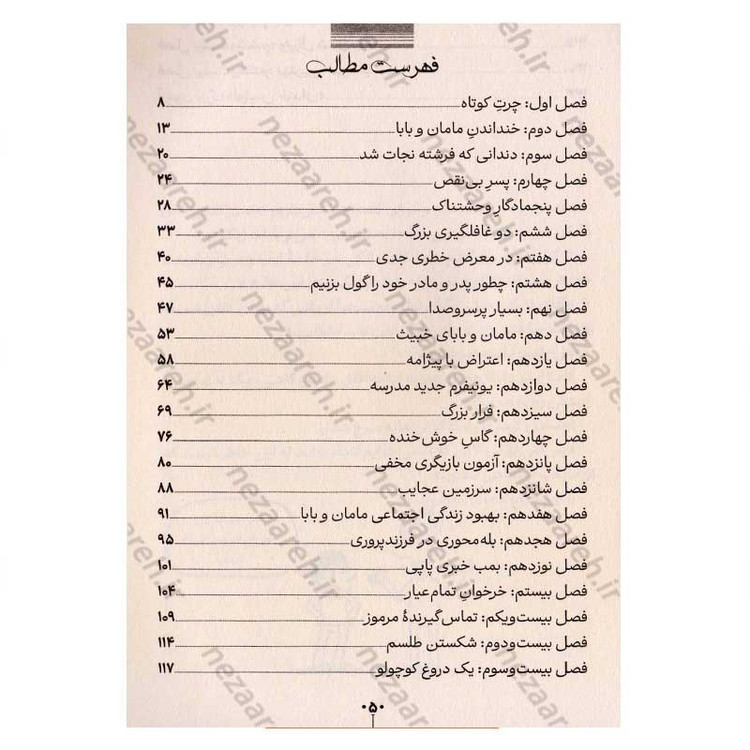 فهرست مطالب
فصل اول: چرتِ کوتاه ۸
فصل دوم: خنداندنِ مامان و بابا ۱۳
فصل سوم: دندانی که فرشته نجات شد ۲۰
فصل چهارم: پسرِ بی‌نقص ۲۴
فصل پنجم: ادگارِ وحشتناک ۲۸
فصل ششم: دو غافلگیری بزرگ ۳۳
فصل هفتم: در معرض خطری جدی ۴۰
فصل هشتم: چطور پدر و مادر خود را گول بزنیم ۴۵
فصل نهم: بسیار پرسروصدا ۴۷
فصل دهم: مامان و بابای خبیث ۵۳
فصل یازدهم: اعتراض با پیژامه ۵۸
فصل دوازدهم: یونیفرم جدید مدرسه ۶۴
فصل سیزدهم: فرار بزرگ ۶۹
فصل چهاردهم: گاسِ خوش‌خنده ۷۶
فصل پانزدهم: آزمون بازیگری مخفی ۸۰
فصل شانزدهم: سرزمین عجایب ۸۸
فصل هفدهم: بهبود زندگی اجتماعی مامان و بابا ۹۱
فصل هجدهم: بله‌محوری در فرزندپروری ۹۵
فصل نوزدهم: بمب خبری پاپی ۱۰۱
فصل بیستم: خرخوانِ تمام‌عیار ۱۰۴
فصل بیست‌ویکم: تماس‌گیرندهٔ مرموز ۱۰۹
فصل بیست‌ودوم: شکستن طلسم ۱۱۴
فصل بیست‌وسوم: یک دروغ کوچولو ۱۱۷
۵
nezaareh.ir